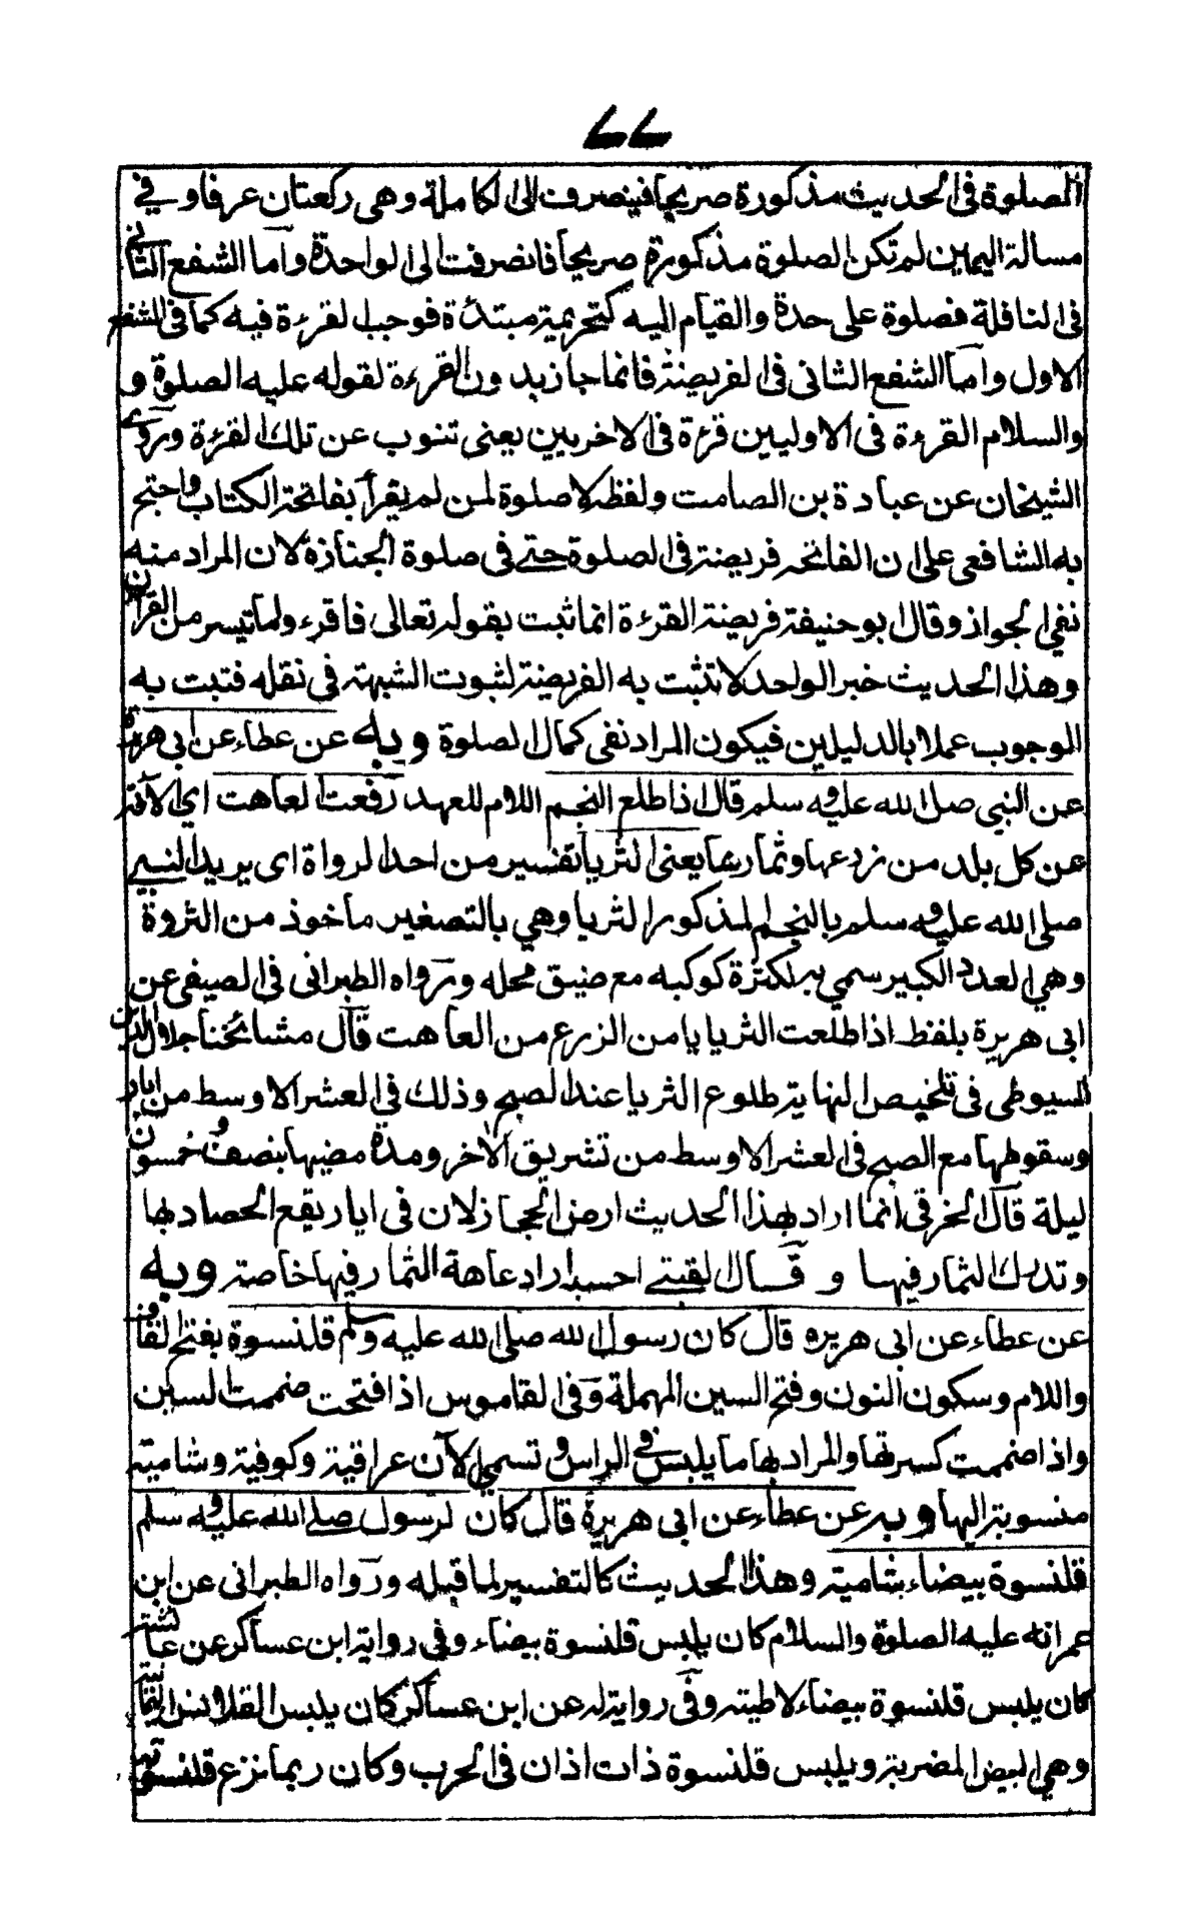 ٧٧
الصلوة فى الحديث مذكورة صريحا فينصرف الى الكاملة وهى ركعتان عرفا وفي
مسالة اليمين لم تكن الصلوة مذكورة صريحا فانصرفت الى الواحدة وأما الشفع الثاني
فى النافلة فصلوة على حدة والقيام اليه كتحريمة مبتدئة فوجب القرءة فيه كما فى الشفع
الاول واما الشفع الثانى فى الفريضة فانما جاز بدون القرءة لقوله عليه الصلوة و
والسلام القرءة فى الاوليين قرءة فى الاخريين يعنى تنوب عن تلك القرءة وروى
الشيخان عن عبادة بن الصامت ولفظه لا صلوة لمن لم يقرأ بفاتحة الكتاب واحتج
به الشافعى على ان الفاتحه فريضة فى الصلوة حتى فى صلوة الجنازة لان المراد منه
نفي الجواز وقال ابو حنيفة فريضة القرءة انما ثبت بقوله تعالى فاقرءوا ما تيسر من القرآن
وهذا الحديث خبر الواحد لا تثبت به الفريضة لثبوت الشبهة فى نقله فتبت به
الوجوب عملا بالدليلين فيكون المراد نفى كمال الصلوة وبه عن عطاء عن ابى هريرة
عن النبي صلى الله عليه وسلم قال اذا طلع النجم اللام للعهد رفعت العاهت اى الآفة
عن كل بلد من زرعها وثمارها يعنى الثريا تفسير من احد الرواة اى يريد النبي
صلى الله عليه وسلم بالنجم المذكور الثريا وهي بالتصغير مأخوذ من الثروة
وهي العدد الكبير سمي به لكثرة كوكبه مع ضيق محله ورواه الطبرانى فى الصيفى عن
ابى هريرة بلفظ اذا طلعت الثريا يا من الزرع من العاهت قال مشائخنا جلال الدين
السيوطى فى تلخيص النهاية طلوع الثريا عند الصبح وذلك في العشر الاوسط من ايار
وسقوطها مع الصبح فى العشر الاوسط من تشريق الآخر ومدة مضيها بنصف وخمسون
ليلة قال الخرقى انما اراد بهذا الحديث ارض الحجاز لان فى ايار يقع الحصاد بها
وتدرك الثمار فيها و قال لقبتى احسبه اراد عاهة الثمار فيها خاصة وبه
عن عطاء عن ابى هريره قال كان رسول الله صلى الله عليه وسلم قلنسوة بفتح القاف
واللام وسكون النون وفتح السين المهملة وفى القاموس اذا فتحت ضممت السين
واذا ضممت كسرتها والمراد بها ما يلبس في الراس وتسمي الآن عراقية وكوفية وشامية
منسوبة اليها وبه عن عطاء عن ابى هريرة قال كان لرسول صلى الله عليه وسلم
قلنسوة بيضاء شامية وهذا الحديث كالتفسير لما قبله ورواه الطبرانى عن ابن
عمر انه عليه الصلوة والسلام كان يلبس قلنسوة بيضاء وفى رواية ابن عساكر عن عائشة
كان يلبس قلنسوة بيضاء لاطيته وفى رواية له عن ابن عساكر كان يلبس القلانس اليمانية
وهي البيض المضربة ويلبس قلنسوة ذات اذان فى الحرب وكان ربما نزع قلنسوته